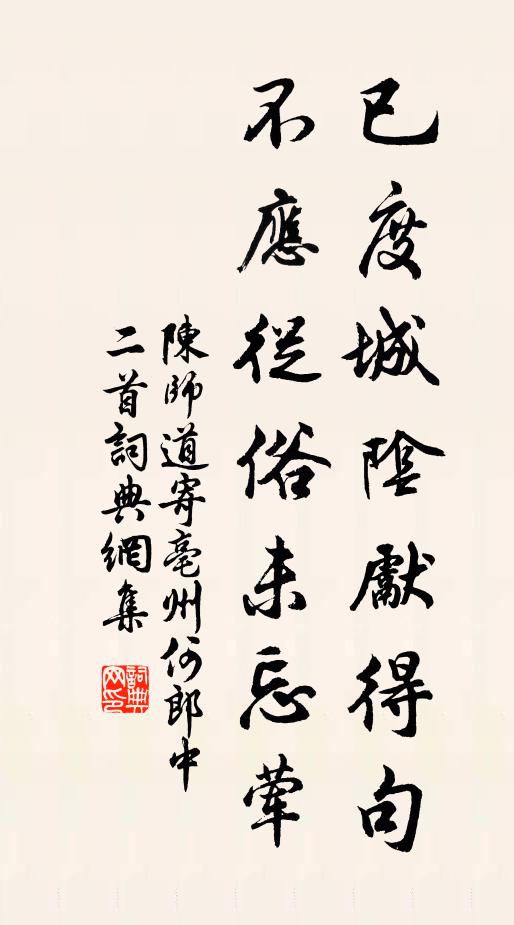 已度城陰獻得句
不應從俗未忘葷
陳師道寄亳州何郎中
二首詞典網集
詞典網印